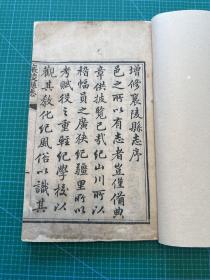 增修襄陵縣志序
邑之所以有志者豈僅備典
章供披覽已哉紀山川所以
稽幅員之廣狹紀疆里所以
考賦役之重輕紀學校以
觀其教化紀風俗以識其